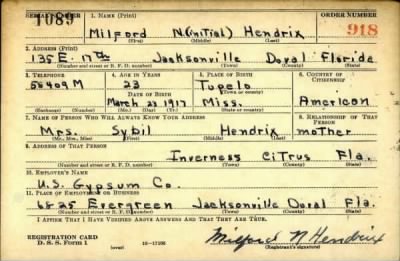 SERIAL NUMBER 1. NAME (Print) ORDER NUMBER
1089 Milford N.(initial) Hendrix 918
(First) (Middle) (Last)
2. ADDRESS (Print)
135 E. 17th Jacksonville Doval Florida
(Number and street or R. F. D. number) (Town) (County) (State)
3. TELEPHONE 4. AGE IN YEARS 5. PLACE OF BIRTH 6. COUNTRY OF CITIZENSHIP
55409M 23 Tupelo
DATE OF BIRTH (Town or county)
March 23 1917 Miss. American
(Exchange) (Number) (Mo.) (Day) (Yr.) (State or country)
7. NAME OF PERSON WHO WILL ALWAYS KNOW YOUR ADDRESS 8. RELATIONSHIP OF THAT PERSON
Mrs. Sybil Hendrix mother
(Mr., Mrs., Miss) (First) (Middle) (Last)
9. ADDRESS OF THAT PERSON
Inverness Citrus Fla.
(Number and street or R. F. D. number) (Town) (County) (State)
10. EMPLOYER'S NAME
U.S. Gypsum Co.
11. PLACE OF EMPLOYMENT OR BUSINESS
6825 Evergreen Jacksonville Doval Fla.
(Number and street or R. F. D. number) (Town) (County) (State)
I AFFIRM THAT I HAVE VERIFIED ABOVE ANSWERS AND THAT THEY ARE TRUE.
REGISTRATION CARD
D. S. S. Form 1 (over) 16-17105 Milford N Hendrix
(Registrant's signature)